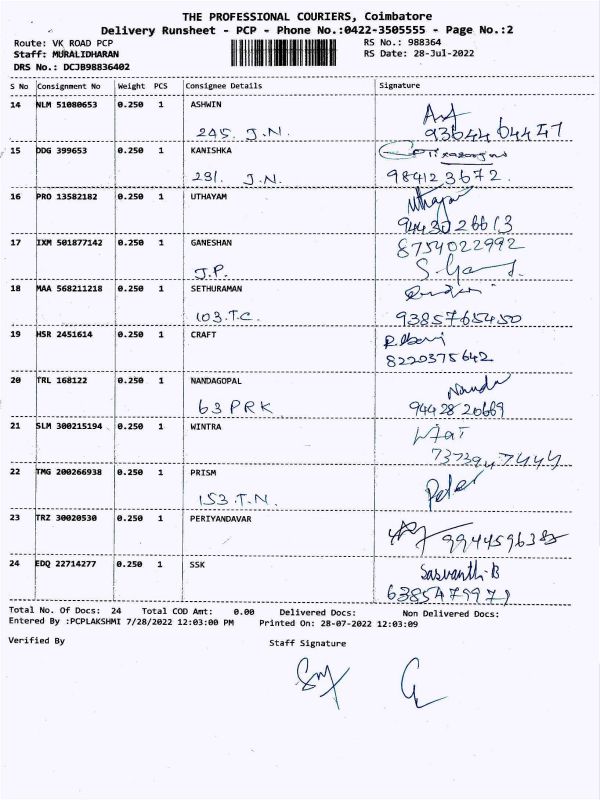 THE PROFESSIONAL COURIERS, Coimbatore
Delivery Runsheet - PCP - Phone No.:0422-3505555 - Page No.:2
Route: VK ROAD PCP RS No.: 988364
Staff: MURALIDHARAN RS Date: 28-Jul-2022
DRS No.: DCJB98836402
S No Consignment No Weight PCS Consignee Details Signature
14 NLM 51080653 0.250 1 ASHWIN
245. J.N. 93644 64447
15 DDG 399653 0.250 1 KANISHKA
231. J.N. 984123672.
16 PRO 13582182 0.250 1 UTHAYAM Uthaya
9443026613
17 IXM 501877142 0.250 1 GANESHAN 8754022992
J.P.
18 MAA 568211218 0.250 1 SETHURAMAN
103.T.C. 9385765450
19 HSR 2451614 0.250 1 CRAFT
8220375642
20 TRL 168122 0.250 1 NANDAGOPAL Nanda
63 PRK 9442820669
21 SLM 300215194 0.250 1 WINTRA
7373947444
22 TMG 200266938 0.250 1 PRISM Peter
153.T.N.
23 TRZ 30020530 0.250 1 PERIYANDAVAR
24 EDQ 22714277 0.250 1 SSK Sasvanth.B
6385479979
Total No. Of Docs: 24 Total COD Amt: 0.00 Delivered Docs: Non Delivered Docs:
Entered By :PCPLAKSHMI 7/28/2022 12:03:00 PM Printed On: 28-07-2022 12:03:09
Verified By Staff Signature